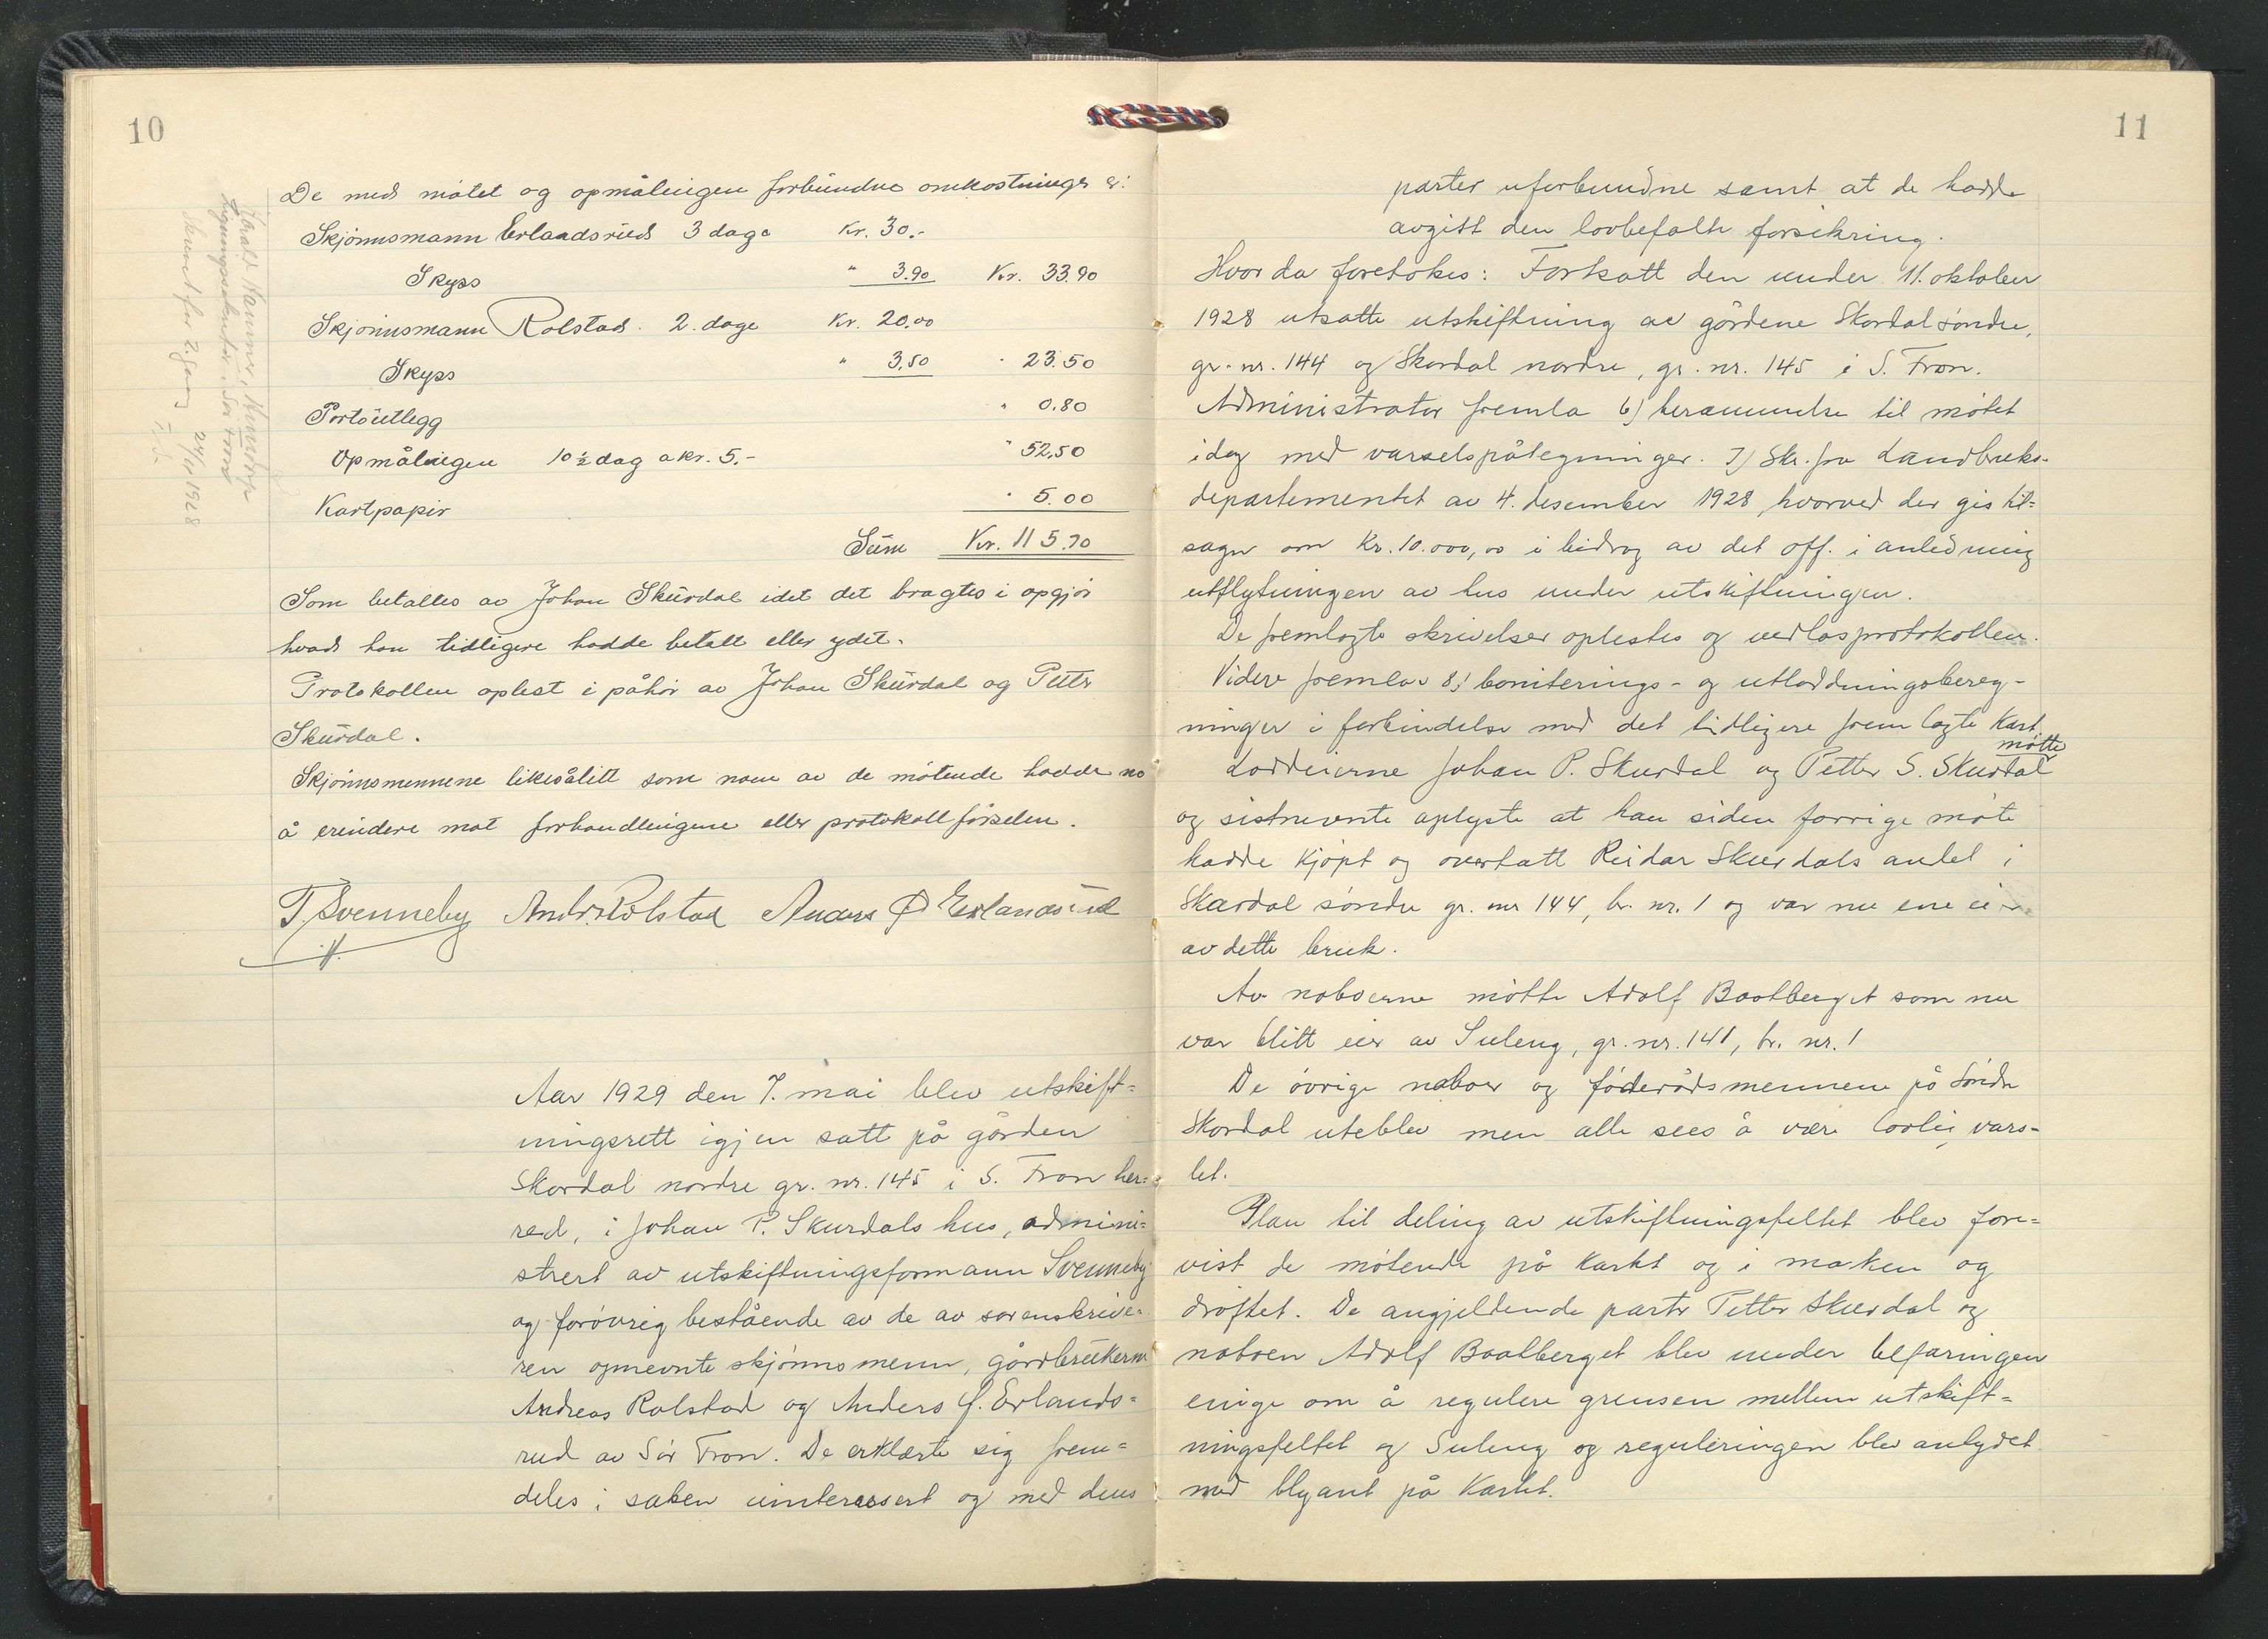 10
De med møtet og opmålingen forbundne omkostninger er:
Skjønnsmann Erlandsrud 3 dage Kr. 30.-
Skyss " 3.90 Kr. 33.90
Skjønnsmann Rolstad. 2. dage Kr. 20.00
Skyss " 3.50 " 23.50
Portoutlegg " 0.80
Opmålingen 10 ½ dag a kr. 5.- " 52.50
Kartpapir " 5.00
Sum Kr. 115.70
Som betaltes av Johan Skurdal idet det bragtes i opgjør
hvad han tidligere hadde betalt eller ydet.
Protokollen oplest i påhør av Johan Skurdal og Petter
Skurdal.
Skjønnsmennene likesålitt som noen av de møtende hadde no
å erindre mot forhandlingene eller protokollførselen.
T. Svenneby Andr. Rolstad Anders Erlandsrud
Aar 1929 den 7. mai blev utskift=
ningsrett igjen satt på gården
Skordal nordre gr. nr. 145 i S. Fron her=
red, i Johan P. Skurdals hus, admini=
strert av utskiftningsformann Svenneby
og forøvrig bestående av de av sorenskrive=
ren opnevnte skjønnsmenn, gårdbrukerne
Andreas Rolstad og Anders J. Erlands=
rud av Sør Fron. De erklærte sig frem=
deles i saken uinteressert og med dens
1928
11
parter uforbundne samt at de hadde
avgitt den lovbefalte forsikring.
Hvor da foretokes: Fortsatt den under 11. oktober
1928 utsatte utskiftning av gårdene Skordal søndre,
gr. nr. 144 og Skordal nordre, gr. nr. 145 i S. Fron.
Administrator fremla 6) berammelse til møtet
idag med varselspåtegninger. 7) Skr. fra Landbruks-
departementet av 4. desember 1928, hvorved der gis til=
sagn om Kr. 10.000,00 i bidrag av det off. i anledning
utflytningen av hus under utskiftningen.
De fremlagte skrivelser oplestes og vedlas protokollen.
Videre fremlas 8) boniterings- og utloddningsbereg-
ninger i forbindelse med det tidligere fremlagte Kart.
møtte
Loddeierne Johan P. Skurdal og Petter S. Skurdal
og sistnevnte oplyste at han siden forrige møte
hadde kjøpt og overtatt Reidar Skurdals andel i
Skardal søndre gr. nr 144, br. nr. 1 og var nu ene eier
av dette bruk.
Av naboerne møtte Adolf Baatberget som nu
var blitt eier av Suleng, gr. nr. 141, br. nr. 1
De øvrige naboer og føderådsmennene på Søndre
Skordal uteblev men alle sees å være lovlig vars=
let.
Plan til deling av utskiftningsfeltet blev fore=
vist de møtende på kartet og i marken og
drøftet. De angjeldende parter Petter Skurdal og
naboen Adolf Baatberget blev under befaringen
enige om å regulere grensen mellem utskift=
ningsfeltet og Suleng og reguleringen blev antydet
med blyant på Kartet.